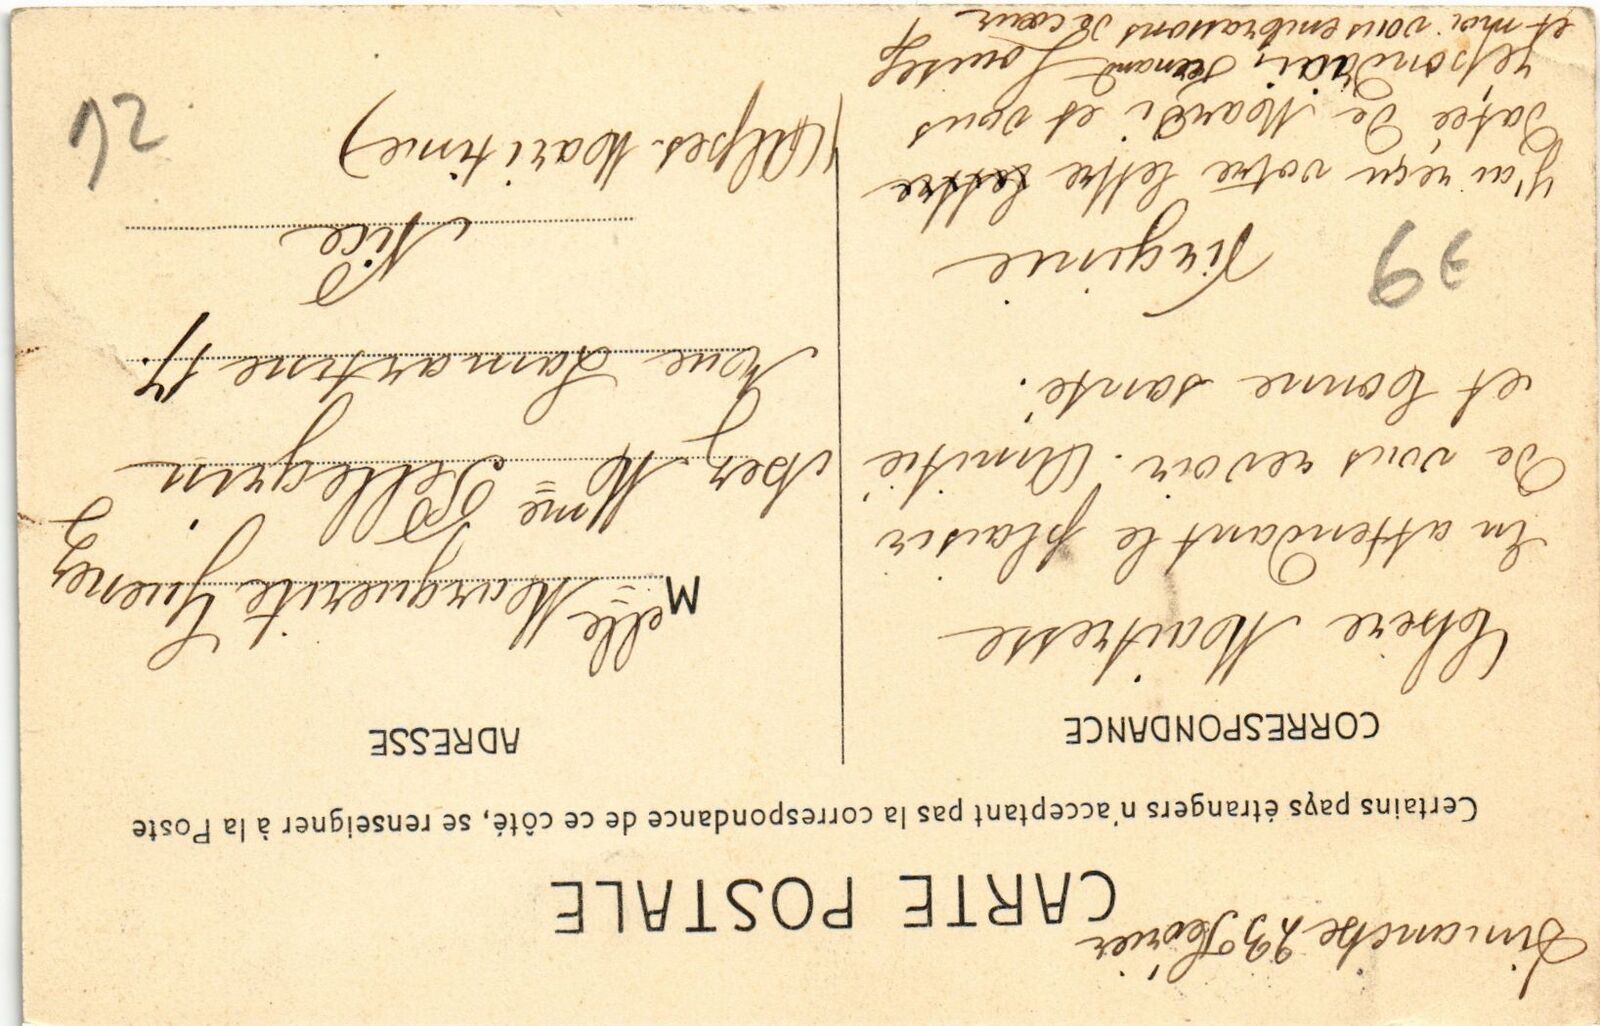 Dimanche 23 Février
CARTE POSTALE
Certains pays étrangers n'acceptant pas la correspondance de ce côté, se renseigner à la Poste
CORRESPONDANCE
Chère Maitresse
En attendant le plaisir
de vous revoir. Amitié
et bonne santé.
Virginie
J'ai reçu votre lettre lettre
datée de Mardi et vous
répondrai, Fernand Louise
et moi vous embrassons de cœur
39
ADRESSE
Melle Marguerite
chez Mme Pellegrin
Rue Lamartine 17.
Nice
(Alpes-Maritime)
12